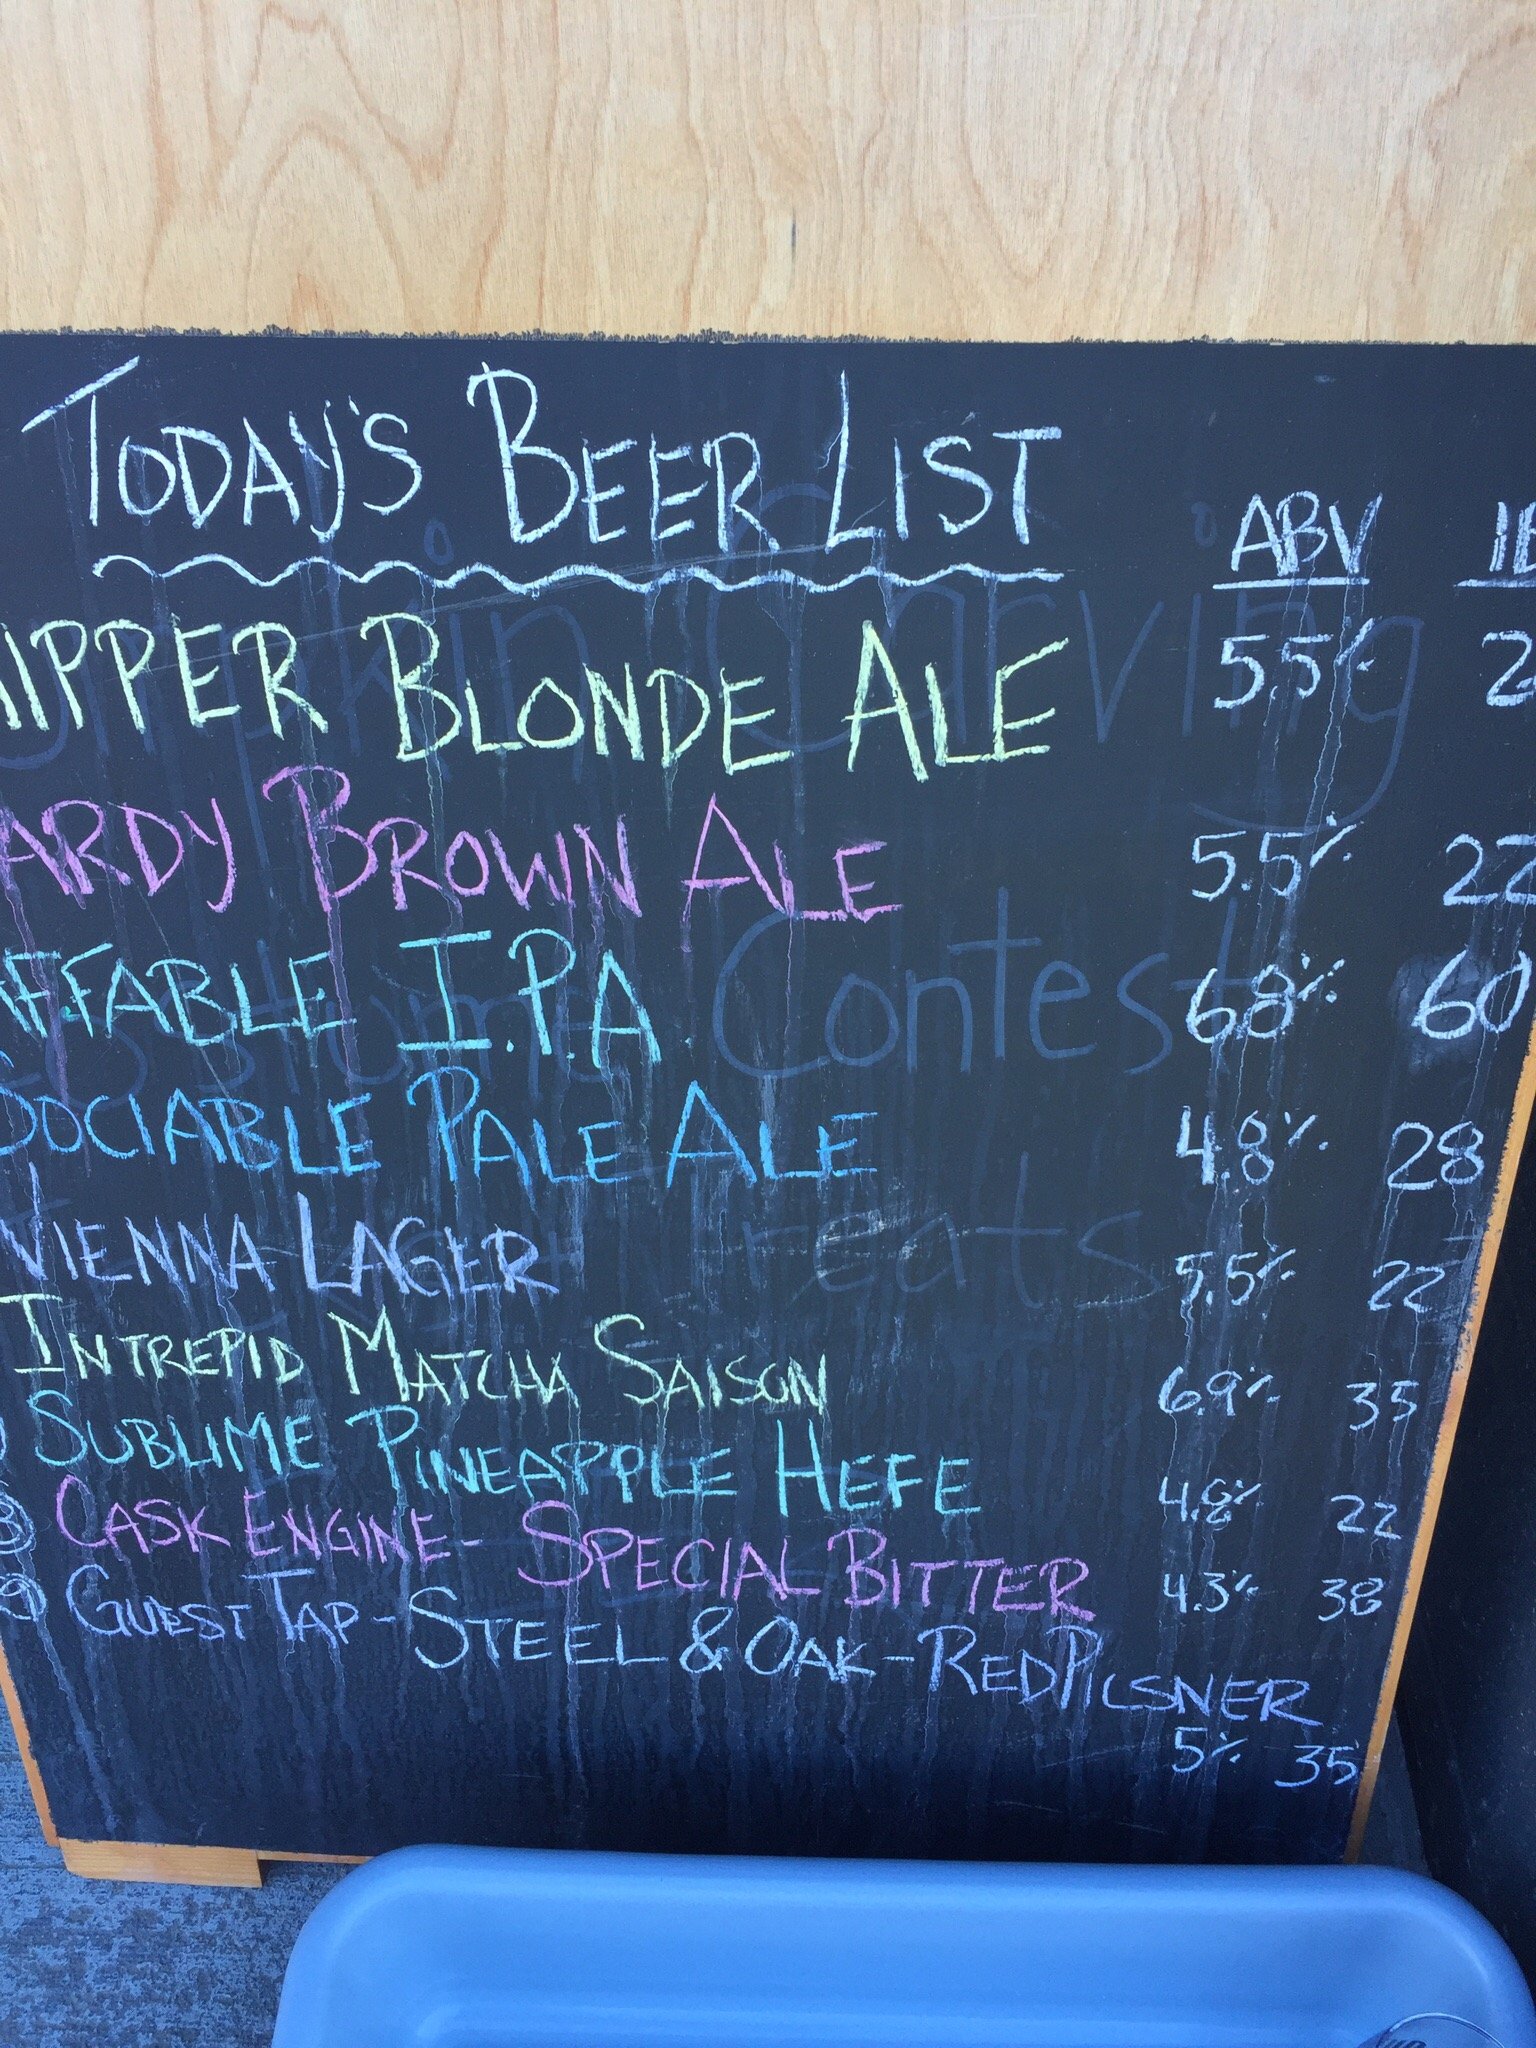 TODAY'S BEER LIST
ABV
IPPER BLONDE ALE 5.5% 2
ARDY BROWN ALE 5.5% 22
AFFABLE I.P.A. 6.8% 60
SOCIABLE PALE ALE 4.8% 28
VIENNA LAGER 5.5% 22
INTREPID MATCHA SAISON 6.9% 35
SUBLIME PINEAPPLE HEFE 4.8% 22
8 CASK ENGINE - SPECIAL BITTER 4.3% 38
9 GUEST TAP - STEEL & OAK - RED PILSNER
5% 35
Carving
Contest
Treats